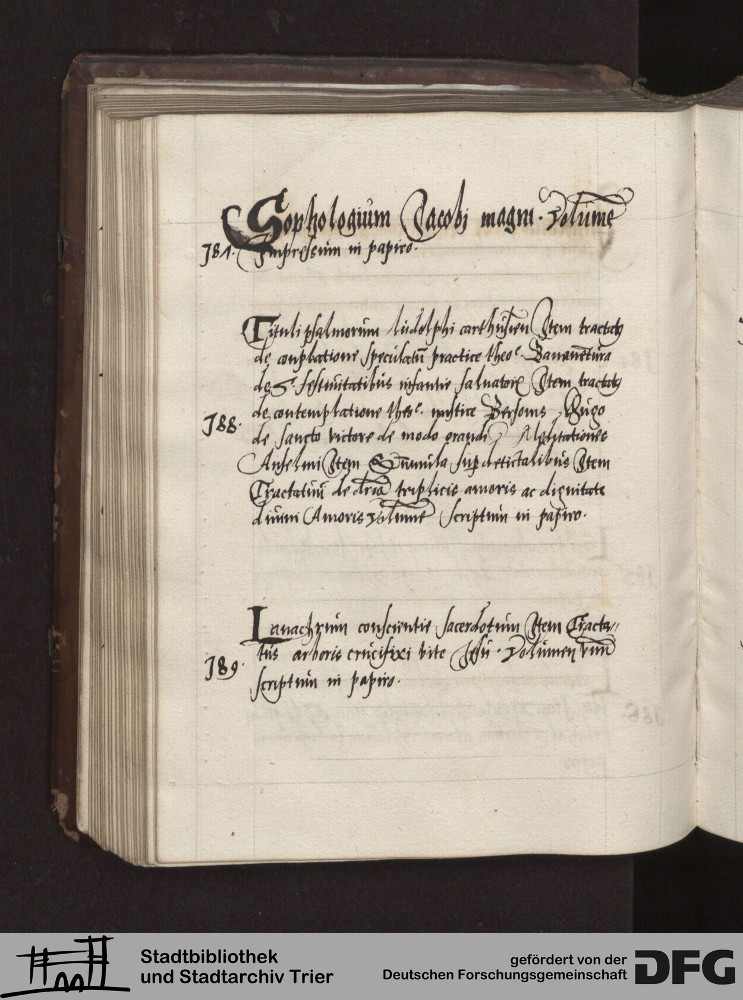 Sophologium Jacobi magni. Volume
J81. Impressum in papiro.
Tituli psalmorum ludolphi carthusien Item tractatus
de contemplatione speculatiua practice theo. Bonauentura
de S. festiuitatibus infantie saluatoris Item tractatus
de contemplatione theo. mistice Hugo
J88.
de sancto victore de modo orandi Meditationes
Anselmi Item Summula super decretalibus Item
Tractatum de dria triplicis amoris ac dignitate
diuini Amoris volume scriptum in papiro.
Lauachrum conscientie sacerdotum Item Tracta-
tus arboris crucifixi vite Jesu. Volumen vnum
J89.
scriptum in papiro.
Stadtbibliothek
und Stadtarchiv Trier
gefördert von der
Deutschen Forschungsgemeinschaft
DFG